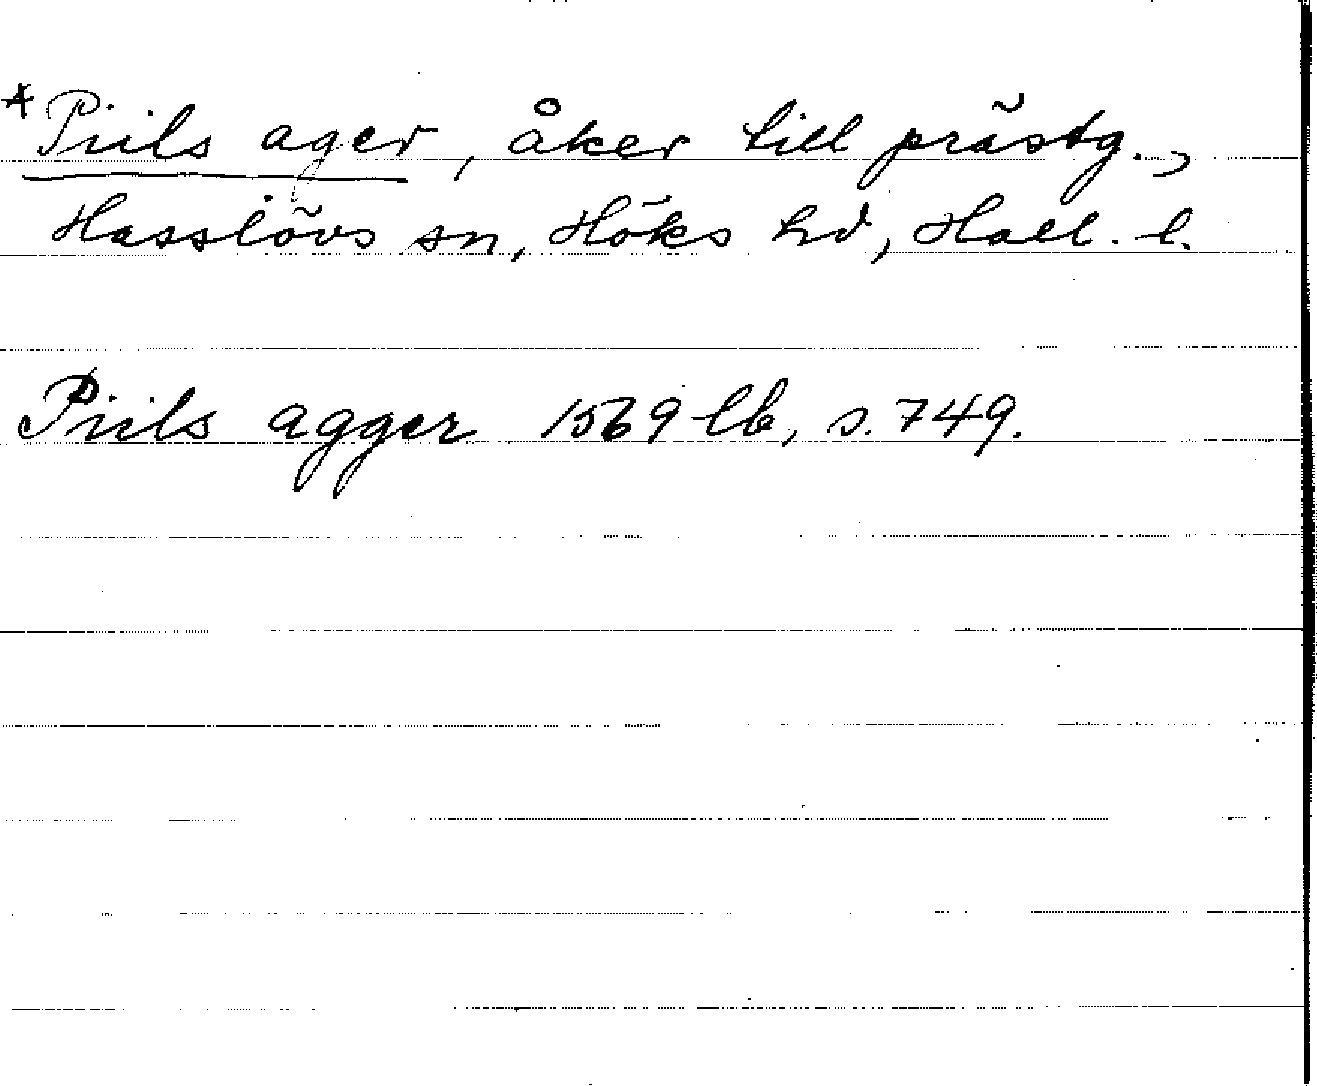 *Piils ager, åker till prästg.,
Hasslövs sn, Höks hd, Hall. l.
Piils agger 1569 lb, s. 749.